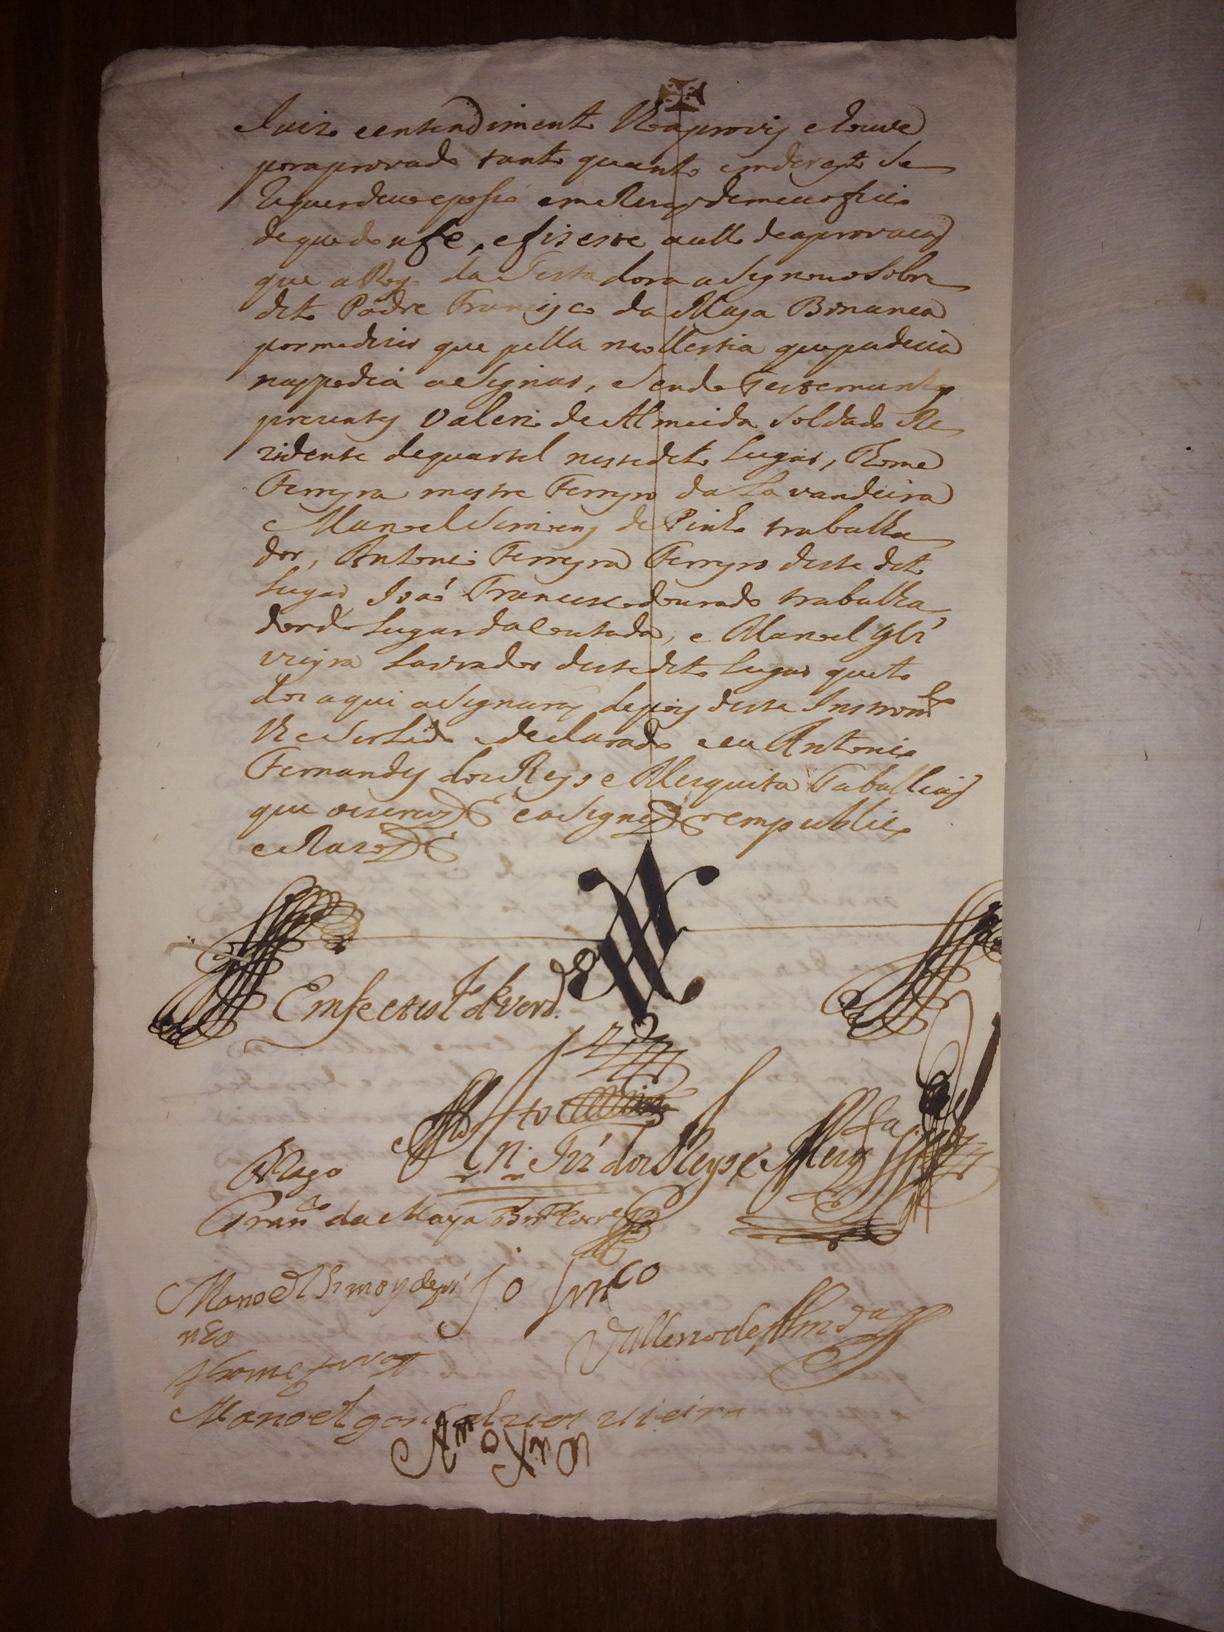 Juizo e entendiment lho aprovey e houve
por aprovado tanto quanto em dereyto se
Requer deve e poso em Rezaõ de meu oficio
de que dou fe, e fis este autto de aprovacaõ
que a Rogo da Testadora asignou o sobre
dito Padre Francisco da Maya Bonanca
por me dizer que pella mollestia que padecia
naõ podia asignar, e sendo testemunhas
prezentes Valerio de Almeida Soldado Re
zidente de quartel neste dito Lugar, Thome
Ferreyra mestre Ferreyro da Lavandeira
Manoel Simoens de Pinho trabalha
dor, Antonio Ferreyra Ferreyro deste dito
Lugar Joaõ Francisco dourado trabalha
dor do Lugar da Coutada, e Manoel Glz
vieyra Lavrador deste dito Lugar que to
dos aqui asignaraõ depois deste Instromto
lhe ser Lido e declarado e eu Antonio
Fernandes dos Reys e Mesquita Taballiaõ
que o escrevy e asigney em publico
e Razo
Em fee e testo de verde
Anto Frz dos Reys e Mesqta
A Rogo
Franco da Maya
Manoel Simoys de pi
nho
Jo Franco
Vallerio de Almda
Thome
Manoel goncalves vieira